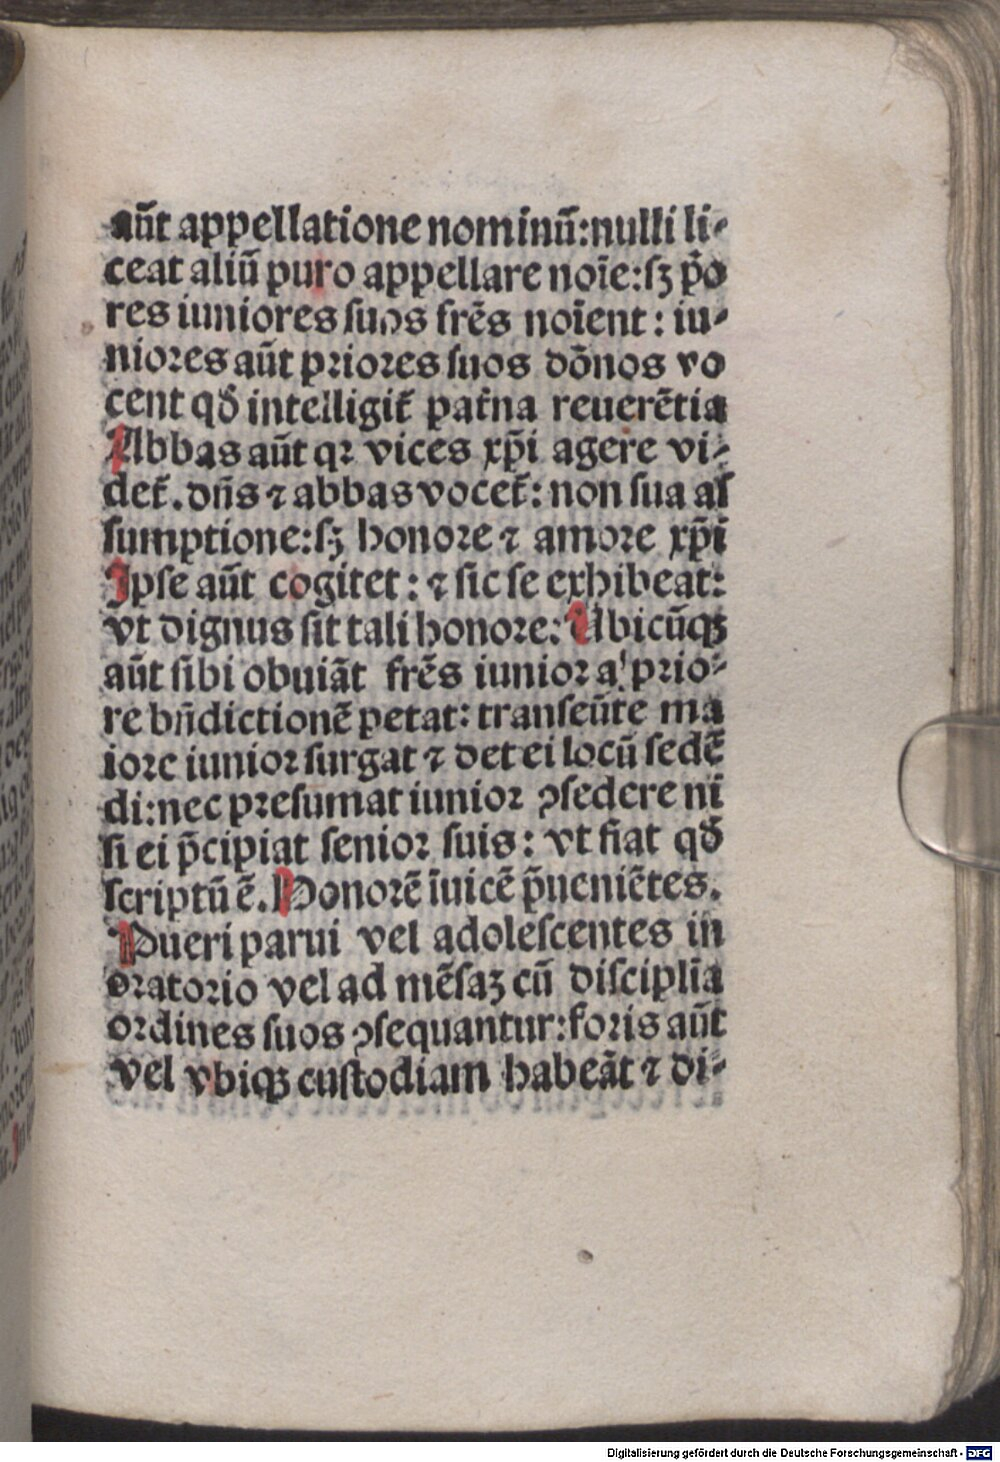 aūt appellatione nominū:nulli li⸗
ceat aliū puro appellare noīe:sꝫ p̄o
res iuniores suos frēs noīent : iu⸗
niores aūt priores suos dōnos vo
cent qđ intelligit̄ pat̄na reuerētia
Abbas aūt qꝛ vices xp̄i agere vi⸗
det̄.dn̄s ⁊ abbas vocet̄: non sua as
sumptione:sꝫ honore ⁊ amore xp̄i
Ipse aūt cogitet : ⁊ sic se exhibeat:
vt dignus sit tali honore: Ubicūqꝫ
aūt sibi obuiāt frēs iunior a' prio⸗
re bn̄dictionē petat: transeūte ma
iore iunior surgat ⁊ det ei locū sedē
di:nec presumat iunior ꝯsedere ni
si ei p̄cipiat senior suis : vt fiat qđ
scriptū ē. Honorē īuicē p̄ueniētes.
Pueri parui vel adolescentes in
oratorio vel ad mēsaꝫ cū disciplīa
ordines suos ꝯsequantur:foris aūt
vel vbiqꝫ custodiam habeāt ⁊ di⸗
Digitalisierung gefördert durch die Deutsche Forschungsgemeinschaft - DFG